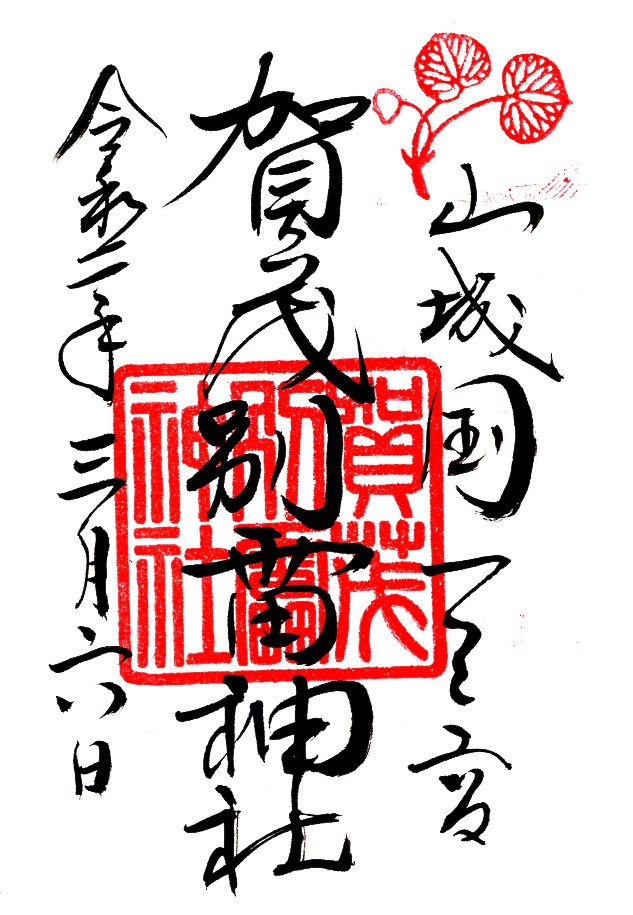 山城国一之宮
賀茂別雷神社
令和二年三月六日
賀茂
別雷
神社